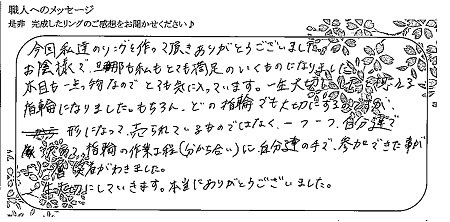 職人へのメッセージ
是非 完成したリングのご感想をお聞かせください♪
今回私達のリングを作って頂きありがとうございました。
お陰様で、旦那も私もとても満足のいくものになりました
本日も一点物なのでとても気に入っています。一生大切に
指輪になりました。もちろん、どの指輪でも大切に
形になって、売られているものではなく、一つ一つ、自分達で
指輪の作業工程(分から合い)に自分達の手で、参加できた事が
実有がわきました。
大切にしていきます。本当にありがとうございました。